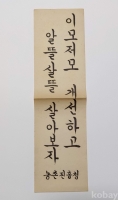 이모저모 개선하고
알뜰살뜰 살아보자
농촌진흥청
kobay